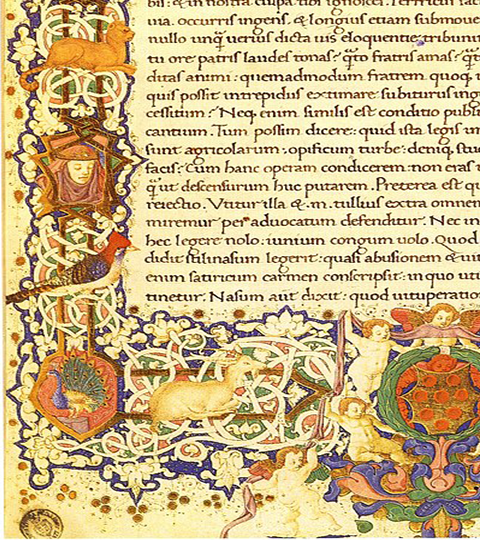 bil: & in nostra culpa tibi
uia. occurris ingens. & longius etiam submoue
nullo unq̃ uerius dicta uis eloquentie tribunit
tu ore patris laudes tonas? q̃to fratris amas? q̃to
ditas animi: quemadmodum fratrem quoq;
quis possit intrepidus extimare subiturus inge
cessitum? Neq; enim similis est conditio publi
cantium. Tum possim dicere: quid ista legis im
sunt agricolarum. opificum turbe: deniq; stu
facis? Cum hanc operam condicerem non eras
q̃ ut descensurum huc putarem. Preterea est qu
reiectio. Vtitur illa & .m. tullius extra omnem
miremur per aduocatum defenditur. Nec in
hec legere nolo: iunium congum uolo. Quod
didit legerit: quasi abusionem & uit
enim satiricum carmen conscripsit. in quo uti
tinetur. Nasum aut dixit: quod uituperatio